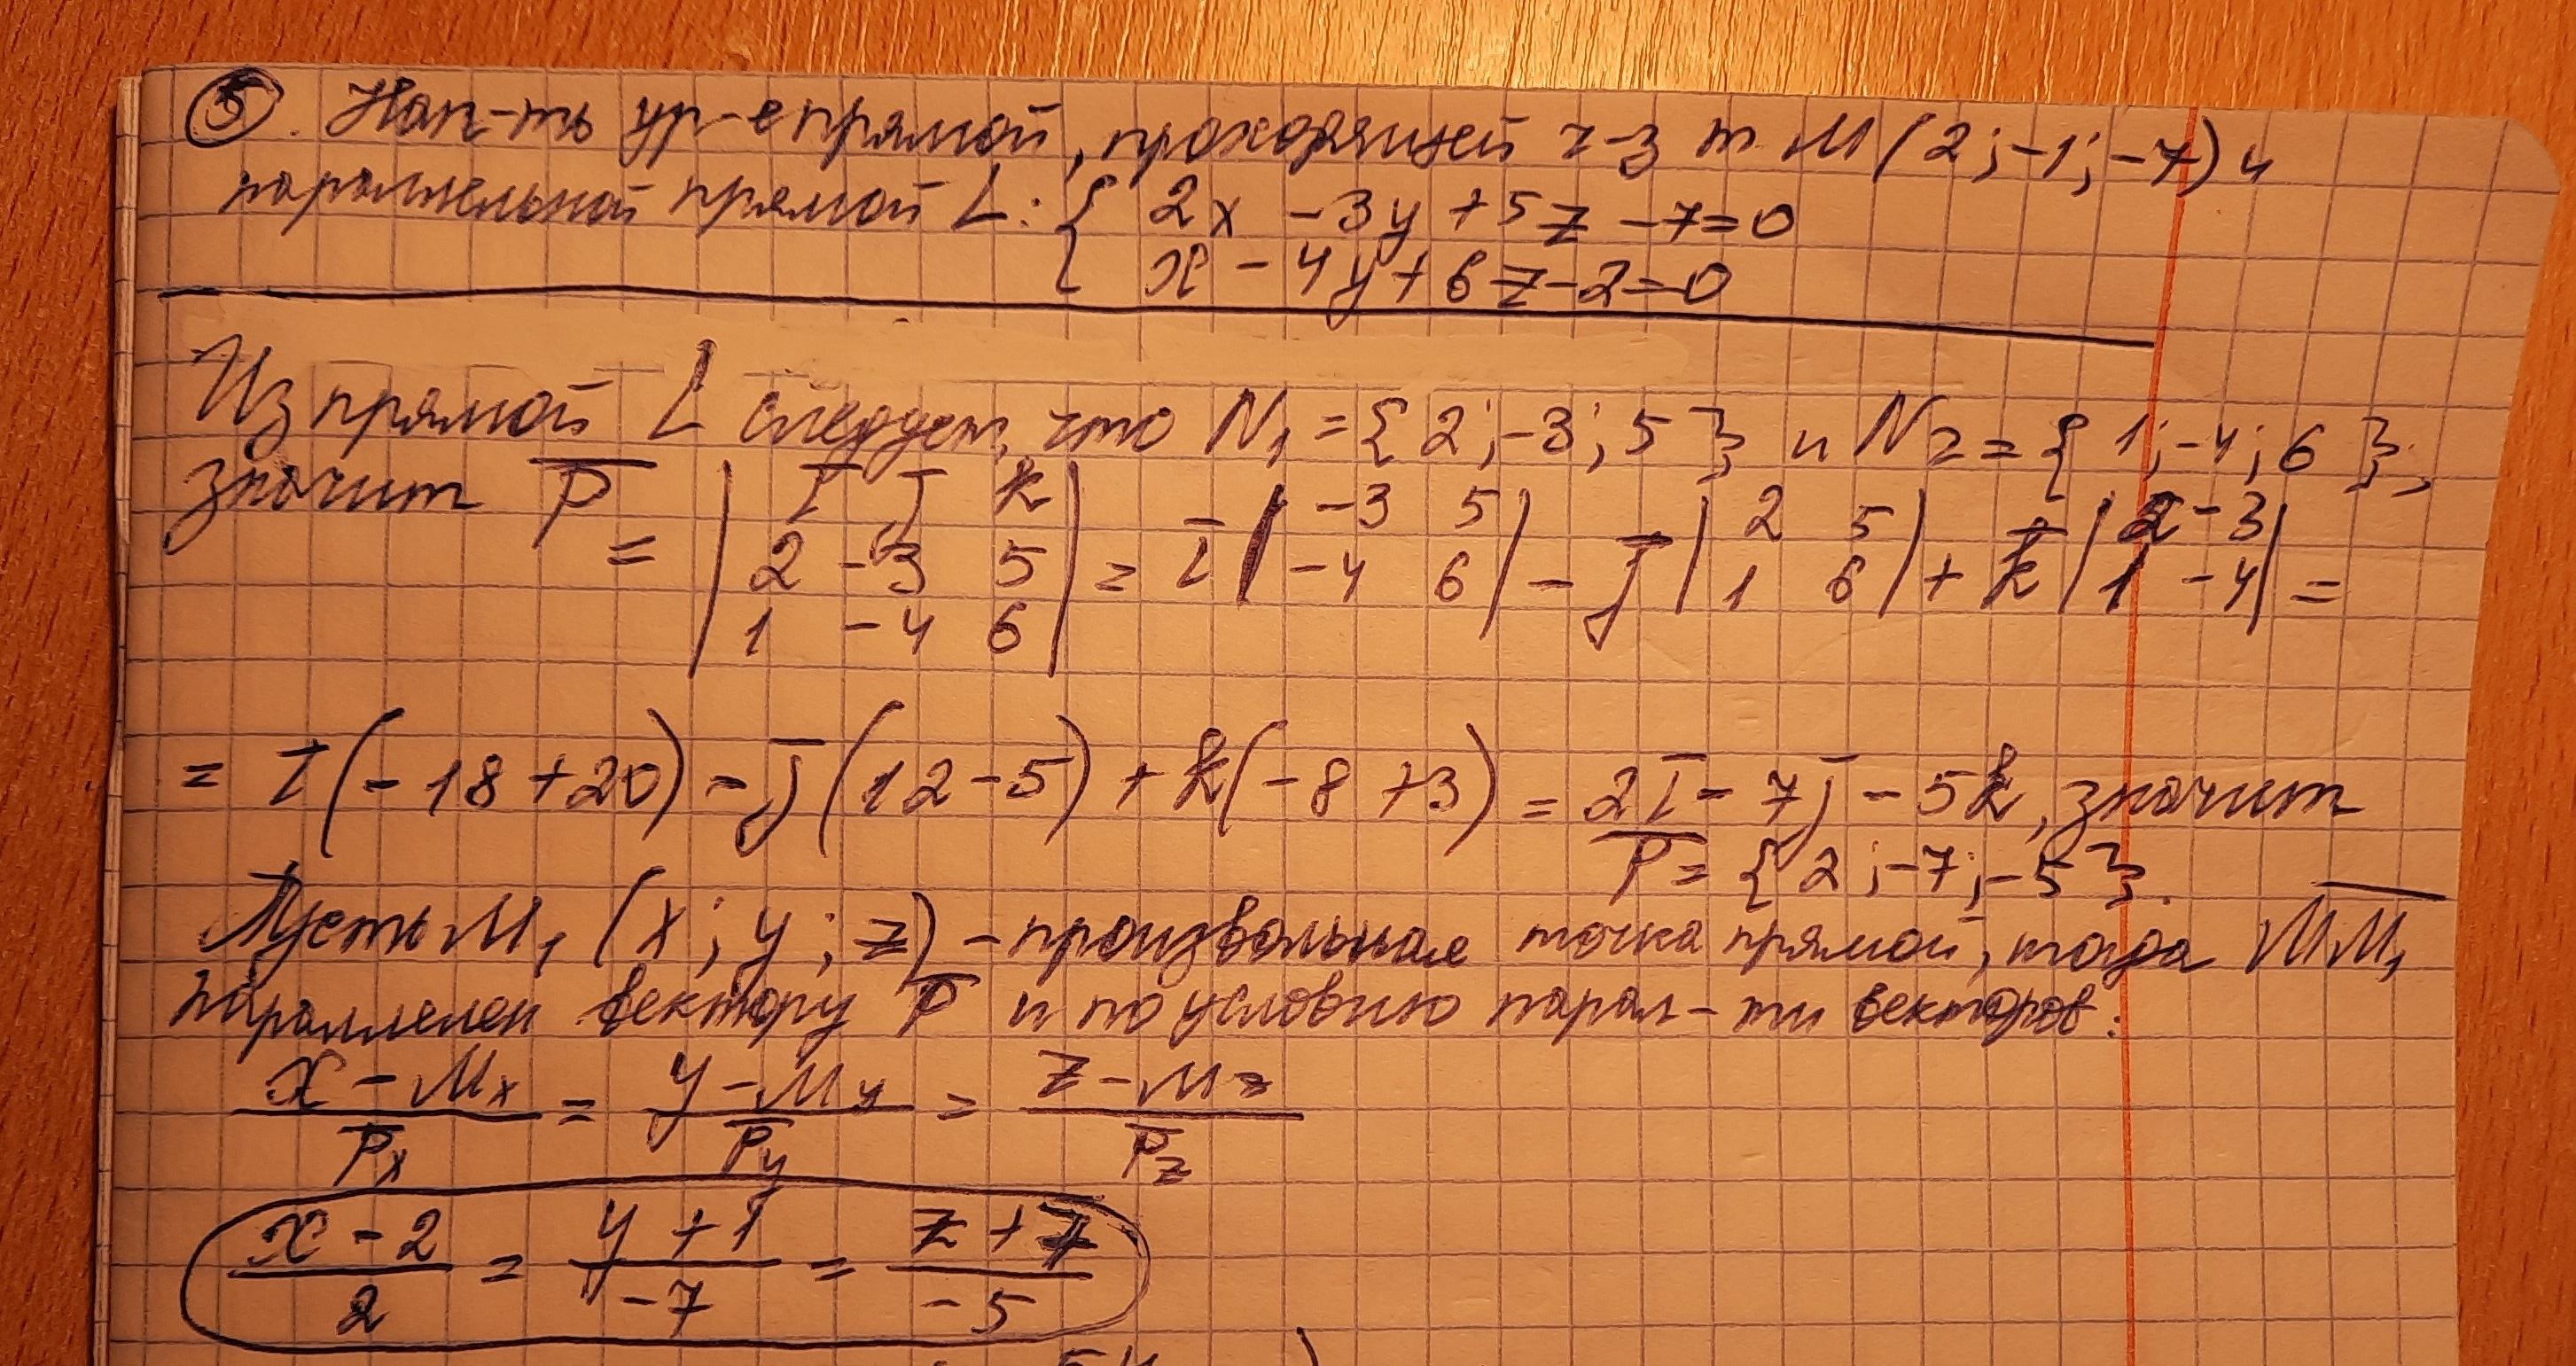 5. Нап-ть ур-е прямой, проходящей ч-з т. M(2;-1;-7) и
параллельной прямой L: { 2x - 3y + 5z - 7 = 0
x - 4y + 6z - 2 = 0
Из прямой L следует, что N₁ = {2;-3;5} и N₂ = {1;-4;6},
значит P̅ = | i̅ j̅ k̅ | = i̅ | -3 5 | - j̅ | 2 5 | + k̅ | 2 -3 | =
| 2 -3 5 | | -4 6 | | 1 6 | | 1 -4 |
| 1 -4 6 |
= i̅(-18+20) - j̅(12-5) + k(-8+3) = 2i̅ - 7j̅ - 5k̅, значит
P̅ = {2;-7;-5}.
Пусть M₁(x; y; z) - произвольная точка прямой, тогда M̅M̅₁
параллелен вектору P̅ и по условию парал-ти векторов:
x - Mx / P̅x = y - My / P̅y = z - Mz / P̅z
x - 2 / 2 = y + 1 / -7 = z + 7 / -5